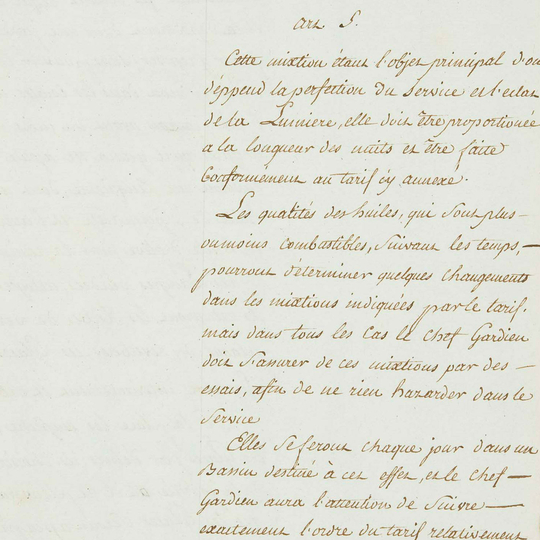 art. 5.
Cette mixtion étant l'objet principal d'ou
déppend la perfection du service et l'eclat
de la Lumiere, elle doit être proportionée
a la longueur des nuits et être faite
Conformément au tarif cy annexé.
Les qualités des huiles, qui sont plus
ou moins combastibles, suivant les temps, —
pourront déterminer quelques changements
dans les mixtions indiquées par le tarif.
mais dans tous les cas le chef Gardien
doit s'assurer de ces mixtions par des —
essais, afin de ne rien hazarder dans le
Service
Elles se feront chaque jour dans un
Bassin destiné à cet effet, et le chef —
Gardien aura l'attention de suivre —
exactement l'ordre du tarif relativement